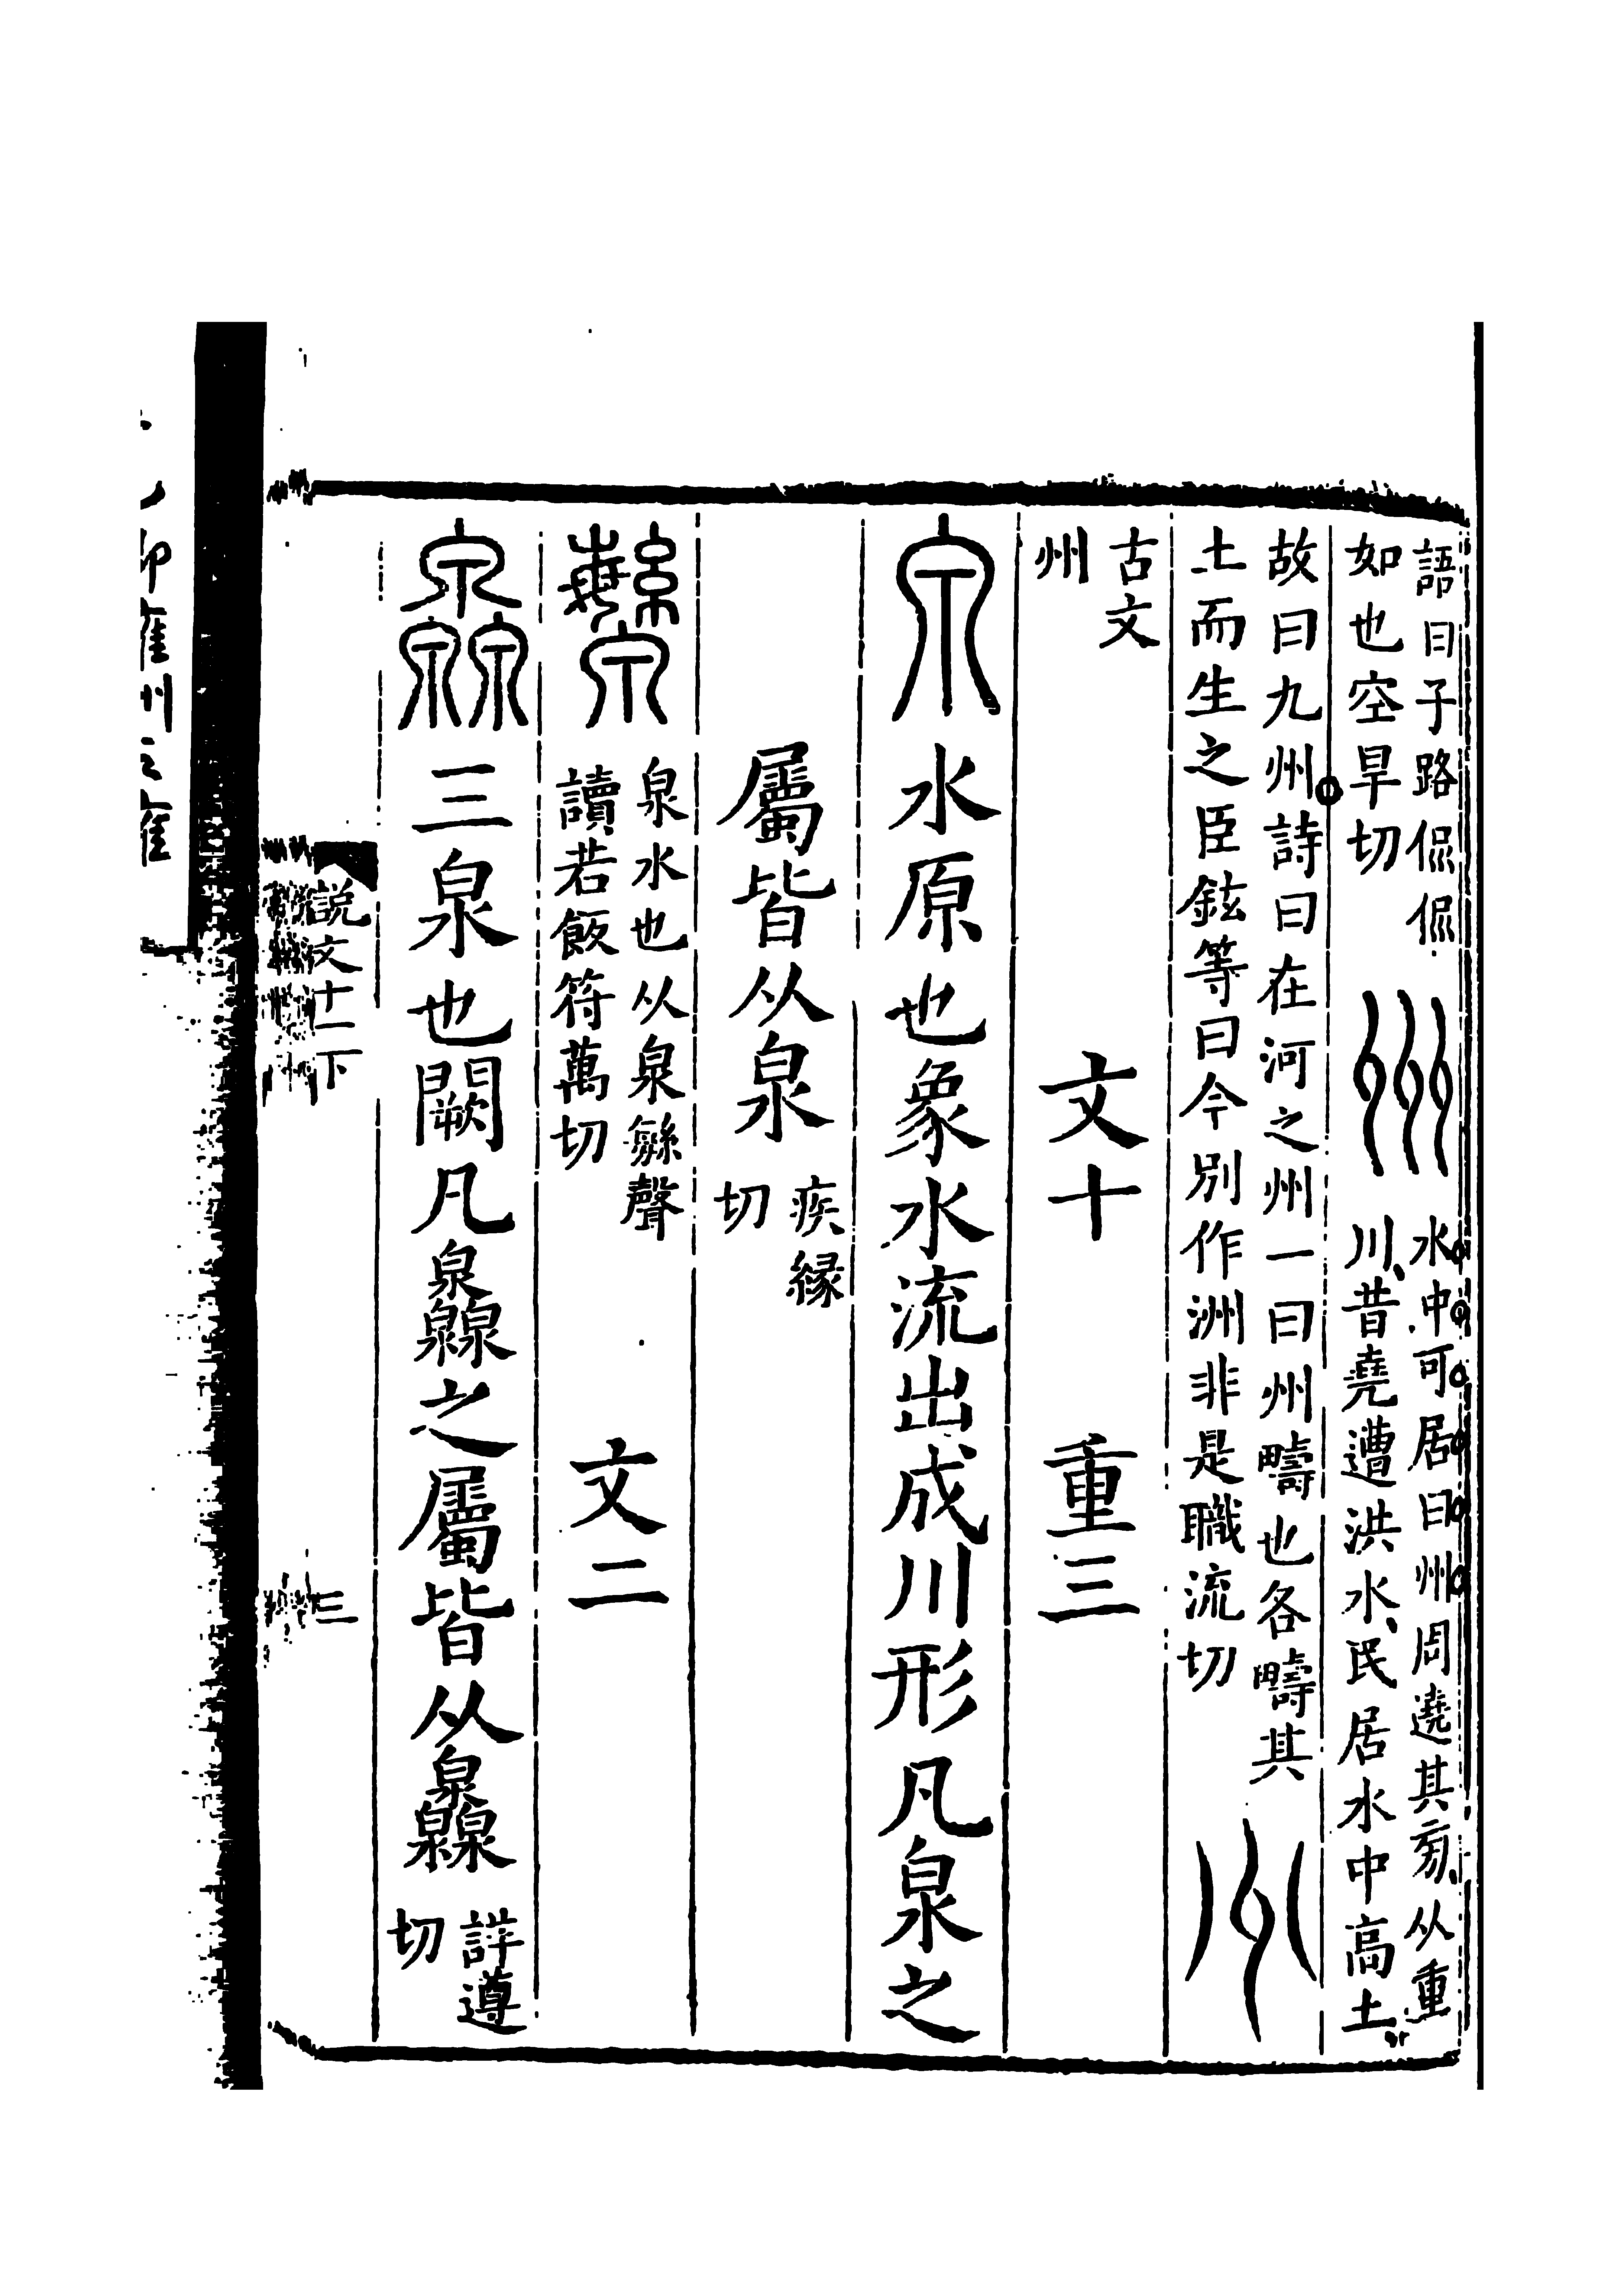 語曰子路侃侃
如也空旱切
州
水中可居曰州周遶其㫄从重
川昔堯遭洪水民居水中高土
故曰九州詩曰在河之州一曰州疇也各疇其
土而生之臣鉉等曰今別作洲非是職流切
州
古文
州
文十 重三
泉 水原也象水流出成川形凡泉之
屬皆从泉 疾緣
切
泉水也从泉緐聲
讀若飯符萬切
文二
灥 三泉也闕凡灥之屬皆从灥 詳遵
切
説文十一下
三